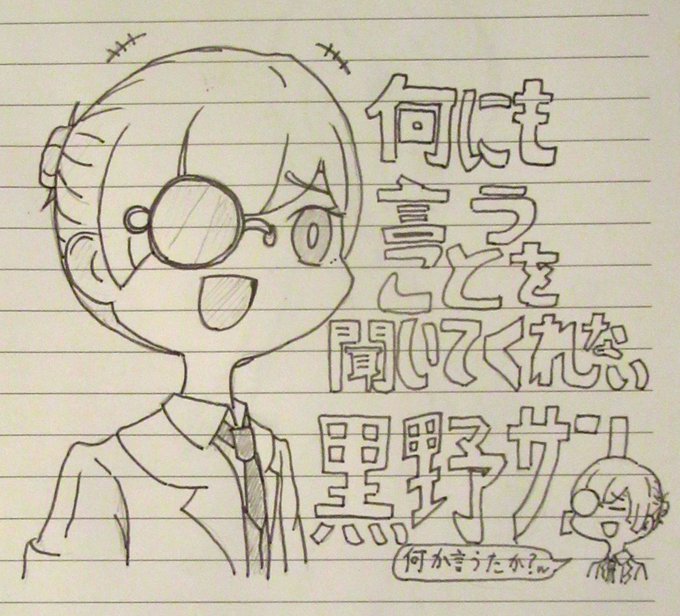 何にも
言う
ことを
聞いてくれない
黒野サン
何か言うたか?~